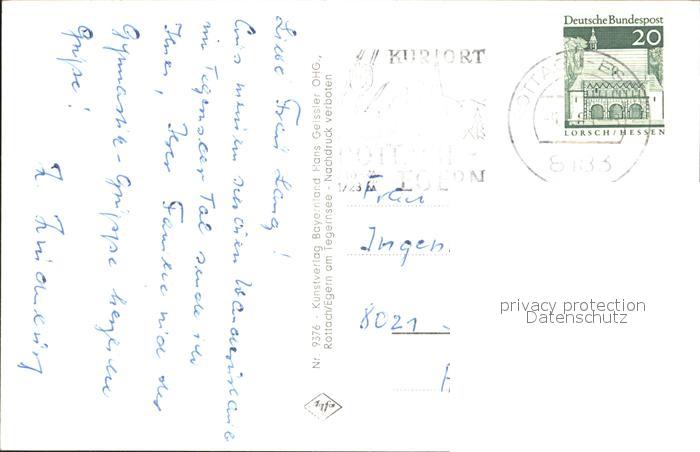 Liebe Frau Lang!
Aus meinem schönen Wanderurlaub
im Tegernseer Tal sende ich
Ihnen, Ihrer Familie und der
Gymnastik-Gruppe herzliche
Grüße!
Nr. 9376 · Kunstverlag Bayernland Hans Geissler OHG.,
Rottach/Egern am Tegernsee · Nachdruck verboten
Agfa
KURORT
ROTTACH-
EGERN
Deutsche Bundespost
20
LORSCH/HESSEN
8183
Frau
Ingen
8021
privacy protection
Datenschutz